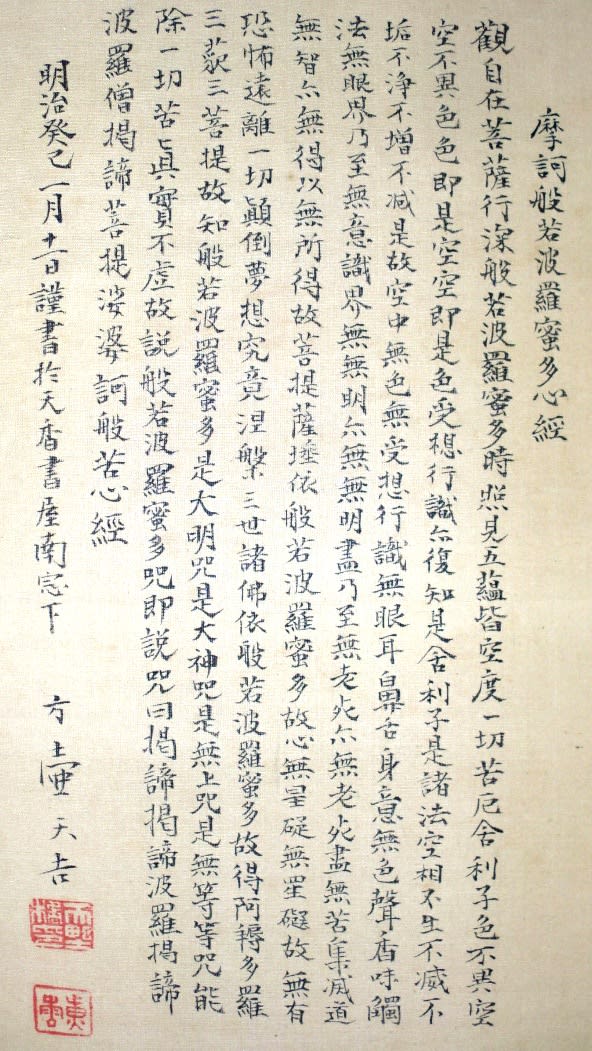 摩訶般若波羅蜜多心經
觀自在菩薩行深般若波羅蜜多時照見五蘊皆空度一切苦厄舍利子色不異空
空不異色色即是空空即是色受想行識亦復知是舍利子是諸法空相不生不滅不
垢不淨不增不減是故空中無色無受想行識無眼耳鼻舌身意無色聲香味觸
法無眼界乃至無意識界無無明亦無無明盡乃至無老死亦無老死盡無苦集滅道
無智亦無得以無所得故菩提薩埵依般若波羅蜜多故心無罣礙無罣礙故無有
恐怖遠離一切顛倒夢想究竟涅槃三世諸佛依般若波羅蜜多故得阿耨多羅
三藐三菩提故知般若波羅蜜多是大明咒是大神咒是無上咒是無等等咒能
除一切苦真實不虛故説般若波羅蜜多咒即説咒曰揭諦揭諦波羅揭諦
波羅僧揭諦菩提娑婆訶般若心經
明治癸巳一月十一日謹書於天香書屋南窓下
方壺天吉